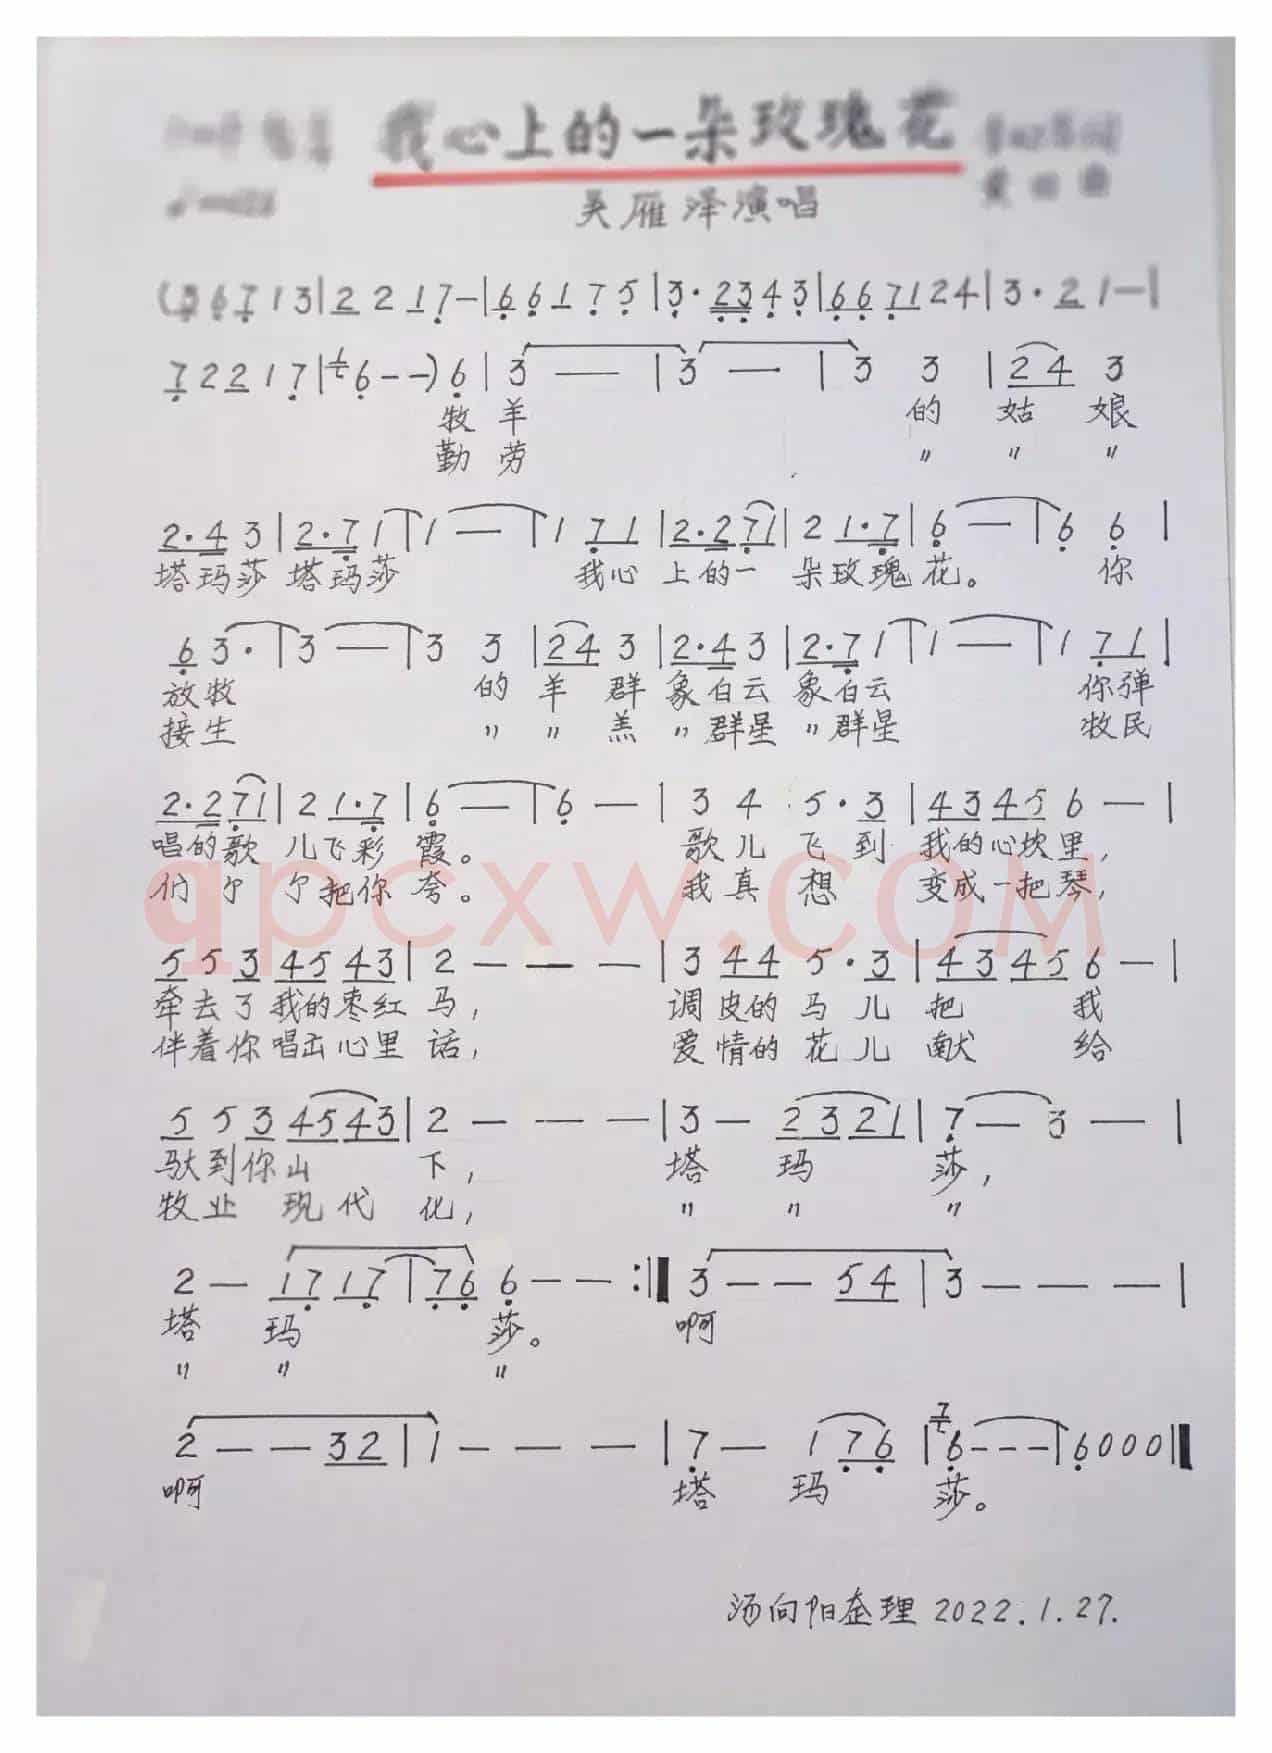 我心上的一朵玫瑰花
吴雁泽演唱
(3 6 7 1 3 | 2 2 1 7 — | 6 6 1 7 5 | 3 · 2 3 4 3 | 6 6 7 1 2 4 | 3 · 2 1 — |
7 2 2 1 7 | 6 - - ) 6 | 3 — | 3 — | 3 3 | 2 4 3
牧 羊 的 姑 娘
勤 劳 〃 〃 〃
2 · 4 3 | 2 · 7 1 | 1 — | 1 7 1 | 2 · 2 7 1 | 2 1 · 7 | 6 — | 6 6 |
塔玛莎 塔玛莎 我心 上的一 朵玫瑰 花。 你
6 3 · | 3 — | 3 3 | 2 4 3 | 2 · 4 3 | 2 · 7 1 | 1 — | 1 7 1 |
放牧 的 羊 群 象白云 象白云 你弹
接生 〃 〃 羔 〃群星 〃群星 牧民
2 · 2 7 1 | 2 1 · 7 | 6 — | 6 — | 3 4 5 · 3 | 4 3 4 5 6 — |
唱的歌 儿飞彩 霞。 歌儿 飞到 我的心坎里,
们 尔 尔把你 夸。 我真 想 变成一把琴,
5 5 3 4 5 4 3 | 2 — — — | 3 4 4 5 · 3 | 4 3 4 5 6 — |
牵去了我的枣红 马, 调皮的 马 儿 把 我
伴着你唱出心里 话, 爱情的 花儿 献 给
5 5 3 4 5 4 3 | 2 — — — | 3 — 2 3 2 1 | 7 — 3 — |
驮到你山 下, 塔 玛 莎,
牧业 现代 化, 〃 〃 〃
2 — 1 7 1 7 | 7 6 6 — — :‖ 3 — — 5 4 | 3 — — — |
塔 玛 莎。 啊
〃 〃 〃
2 — — 3 2 | 1 — — — | 7 — 1 7 6 | 7 6 - - - | 6 0 0 0 ‖
啊 塔 玛 莎。
汤向阳整理 2022.1.27.
qpcxw.com